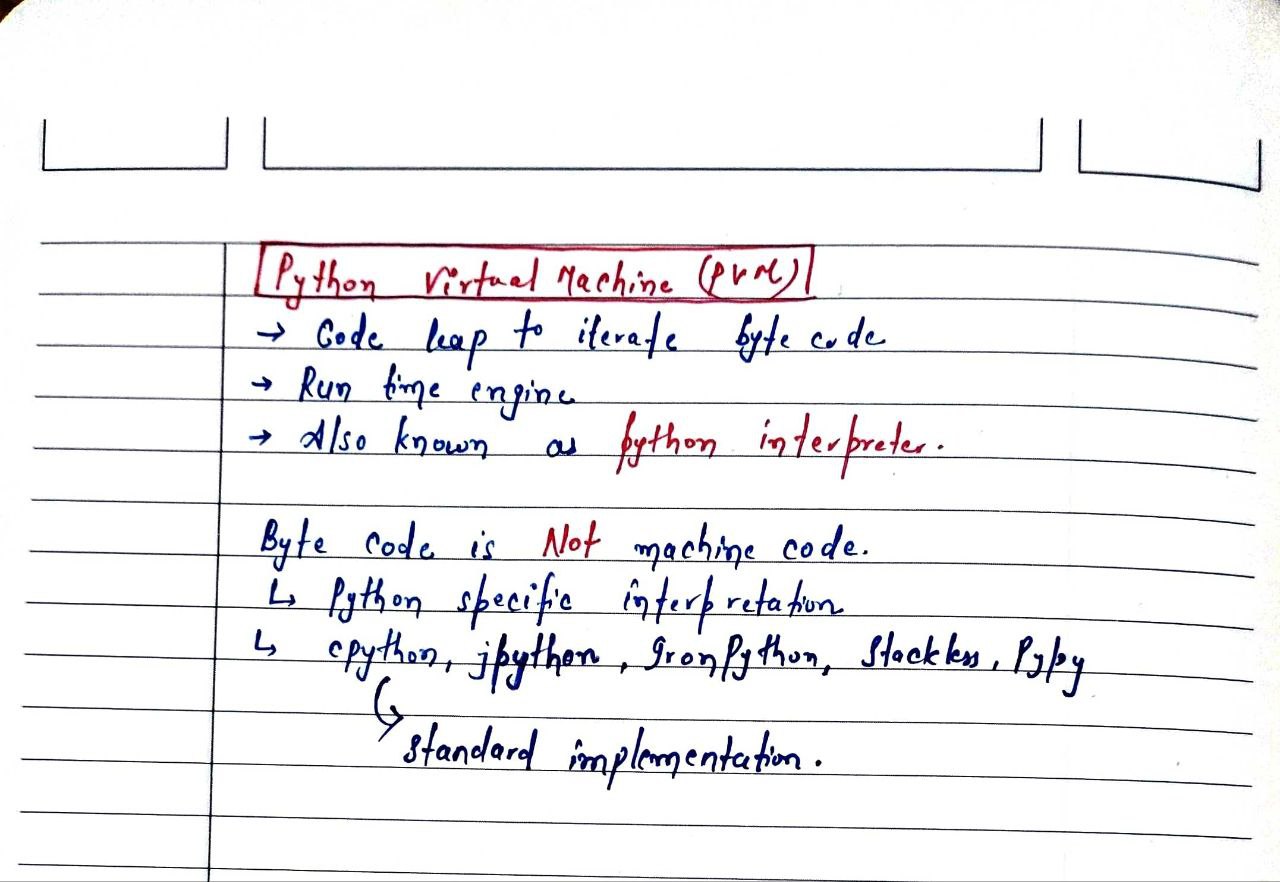 Python Virtual Machine (PVM)
→ Code leap to iterate byte code
→ Run time engine
→ Also known as python interpreter.
Byte code is Not machine code.
↳ Python specific interpretation
↳ cpython, jpython, IronPython, Stackless, Pypy
standard implementation.